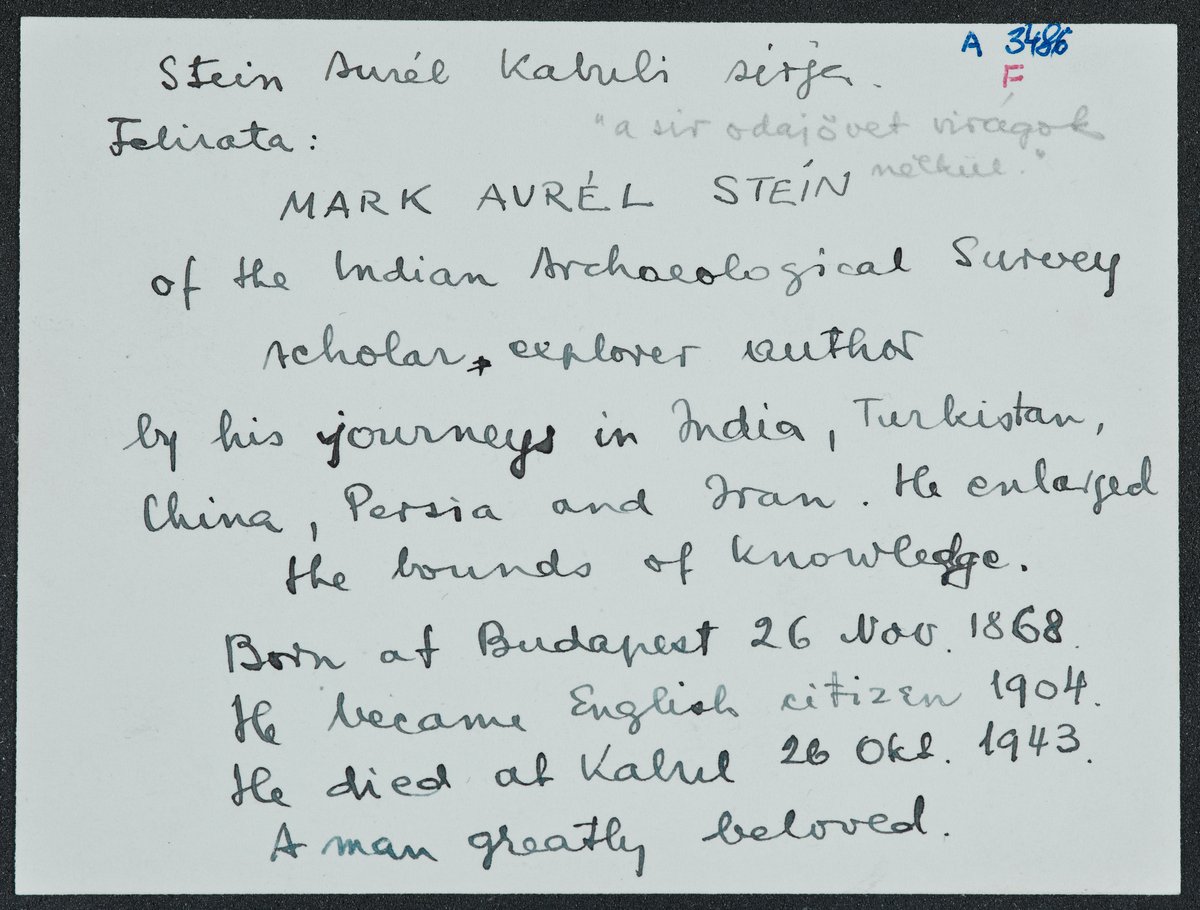 Stein Aurél Kabuli sirja.
A 3486
F
Felirata:
"a sir odajövet virágok
nélkül."
MARK AURÉL STEÍN
of the Indian Archaeological Survey
scholar, explorer author
by his journeys in India, Turkistan,
China, Persia and Iran. He enlarged
the bounds of knowledge.
Born at Budapest 26 Nov. 1868.
He became English citizen 1904.
He died at Kabul 26 Okt. 1943.
A man greatly beloved.